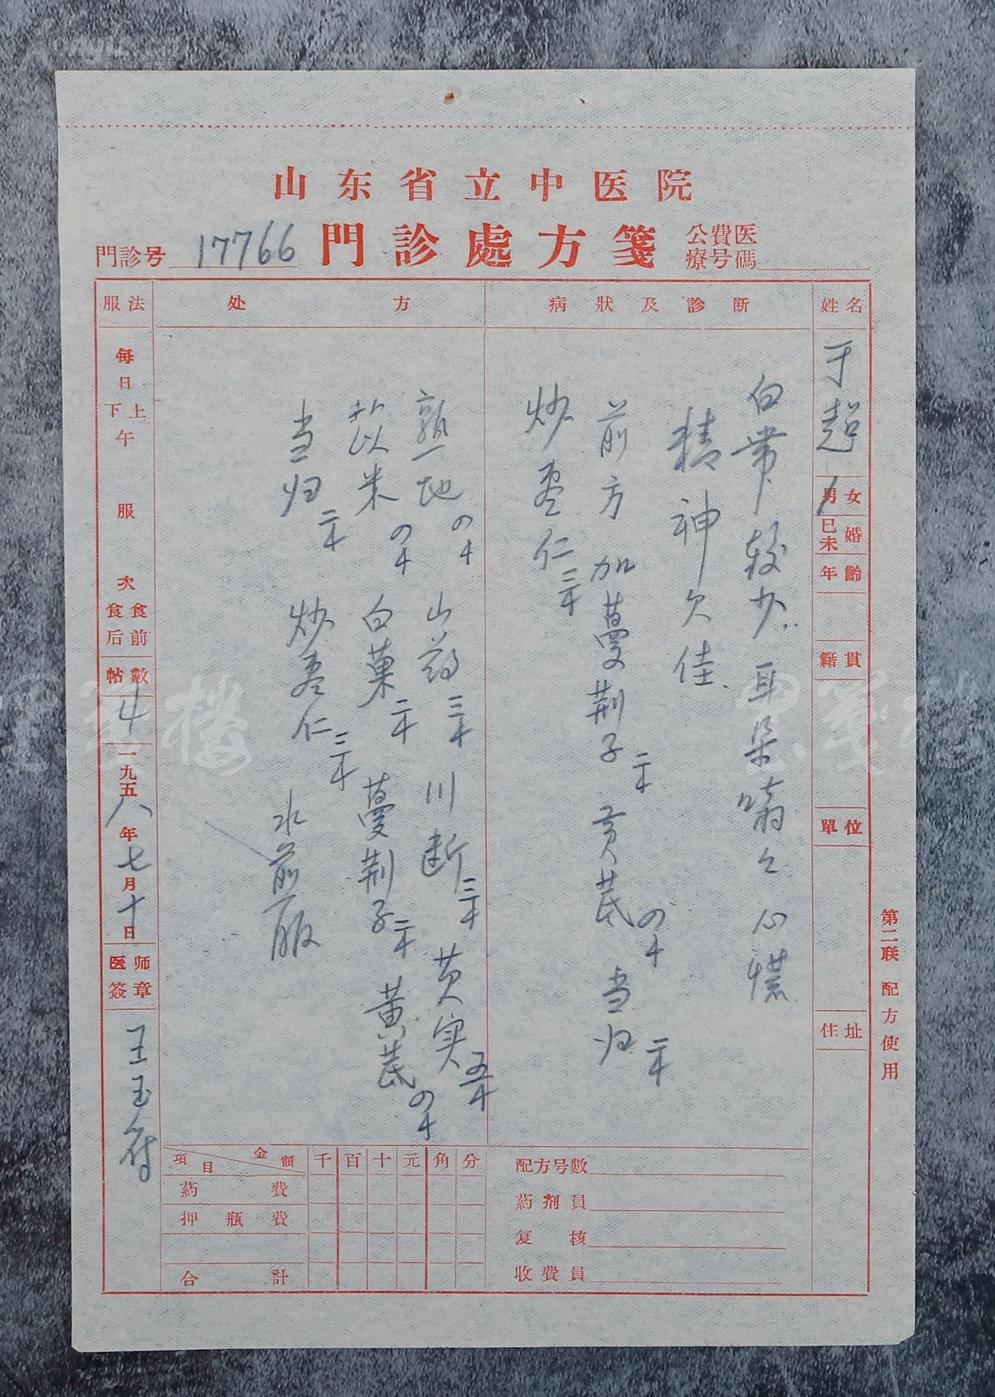 山东省立中医院
門診处方箋
門診号 17766
公費医
療号碼
姓名
于超
男女
已未婚
年齡
籍貫
單位
住址
病狀及診断
白带较少耳朵嗡々心慌
精神欠佳
前方加蔓荆子二千黄芪四千当归二千
炒枣仁三千
处方
熟地四千山药三千川断三千芡实五千
苡米四千白菓二千蔓荆子二千黄芪四千
当归二千炒枣仁三千
水煎服
服法
每日
上下午
服
次
食前
食后
帖數
4
一九五八年七月十日
医师
簽章
王玉符
項目 金額 千 百 十 元 角 分
葯費
押瓶費
合計
配方号數
葯剂員
复核
收費員
第二联 配方使用